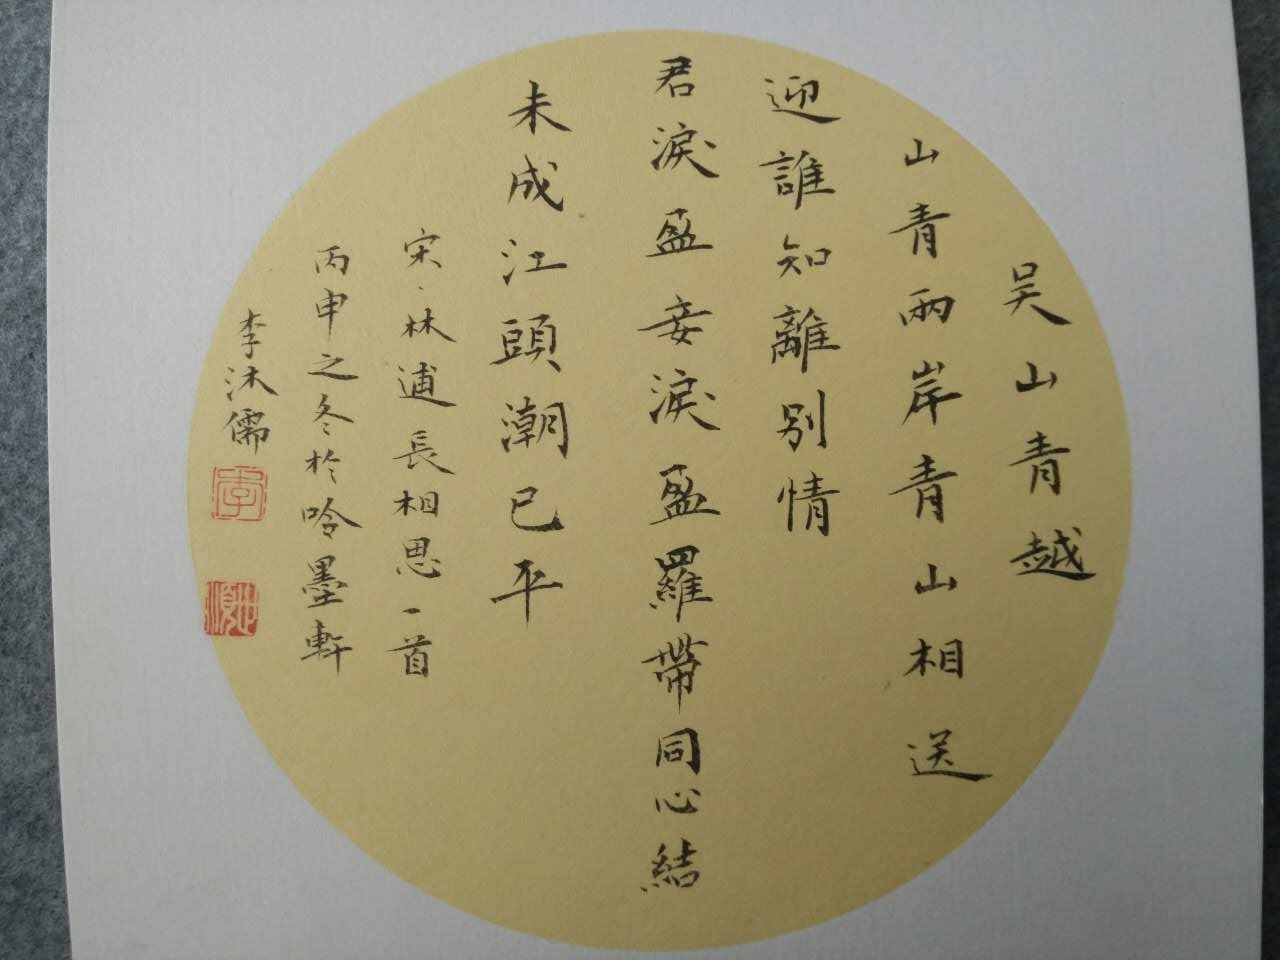 吴山青越
山青兩岸青山相送
迎誰知離别情
君淚盈妾淚盈羅帶同心結
未成江頭潮已平
宋、林逋長相思一首
丙申之冬於唅墨軒
李沐儒
李